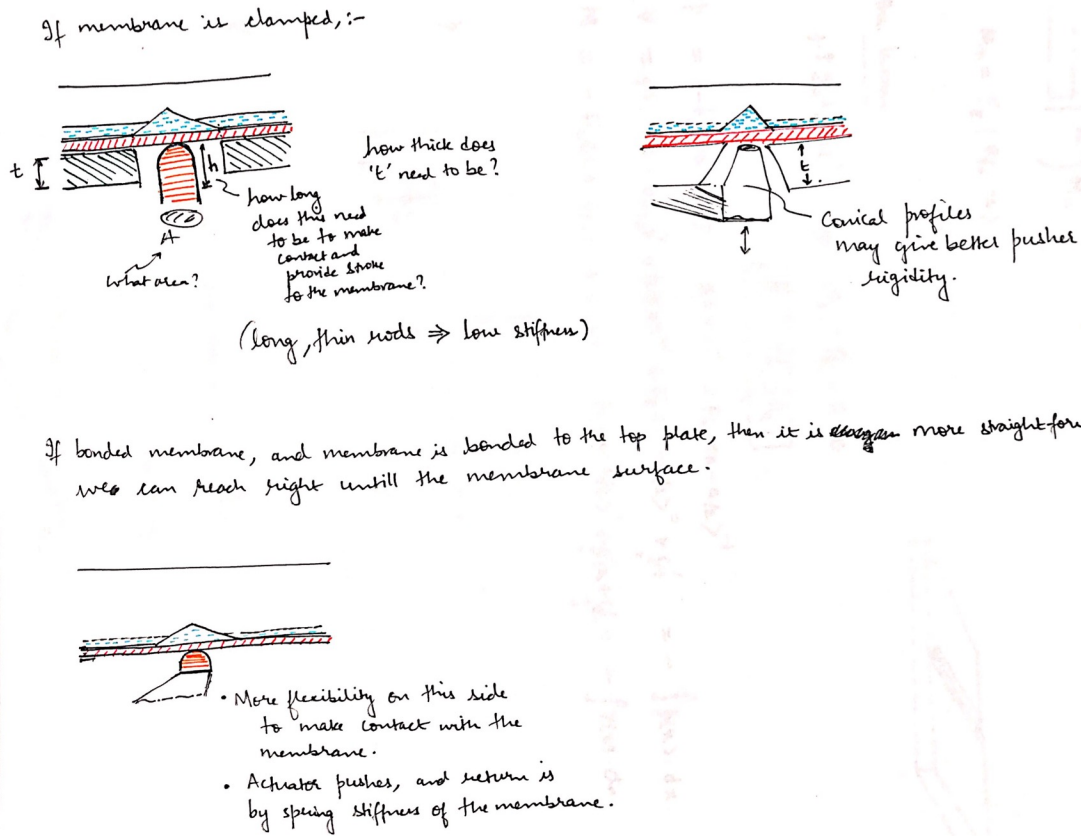 If membrane is clamped,:-
t
h
how thick does
't' need to be?
how long
does this need
to be to make
contact and
provide stroke
to the membrane?
A
What area?
(long, thin rods ⇒ low stiffness)
t
Conical profiles
may give better pusher
rigidity.
If bonded membrane, and membrane is bonded to the top plate, then it is more straight forw
we can reach right untill the membrane surface.
• More flexibility on this side
to make contact with the
membrane.
• Actuator pushes, and return is
by spring stiffness of the membrane.